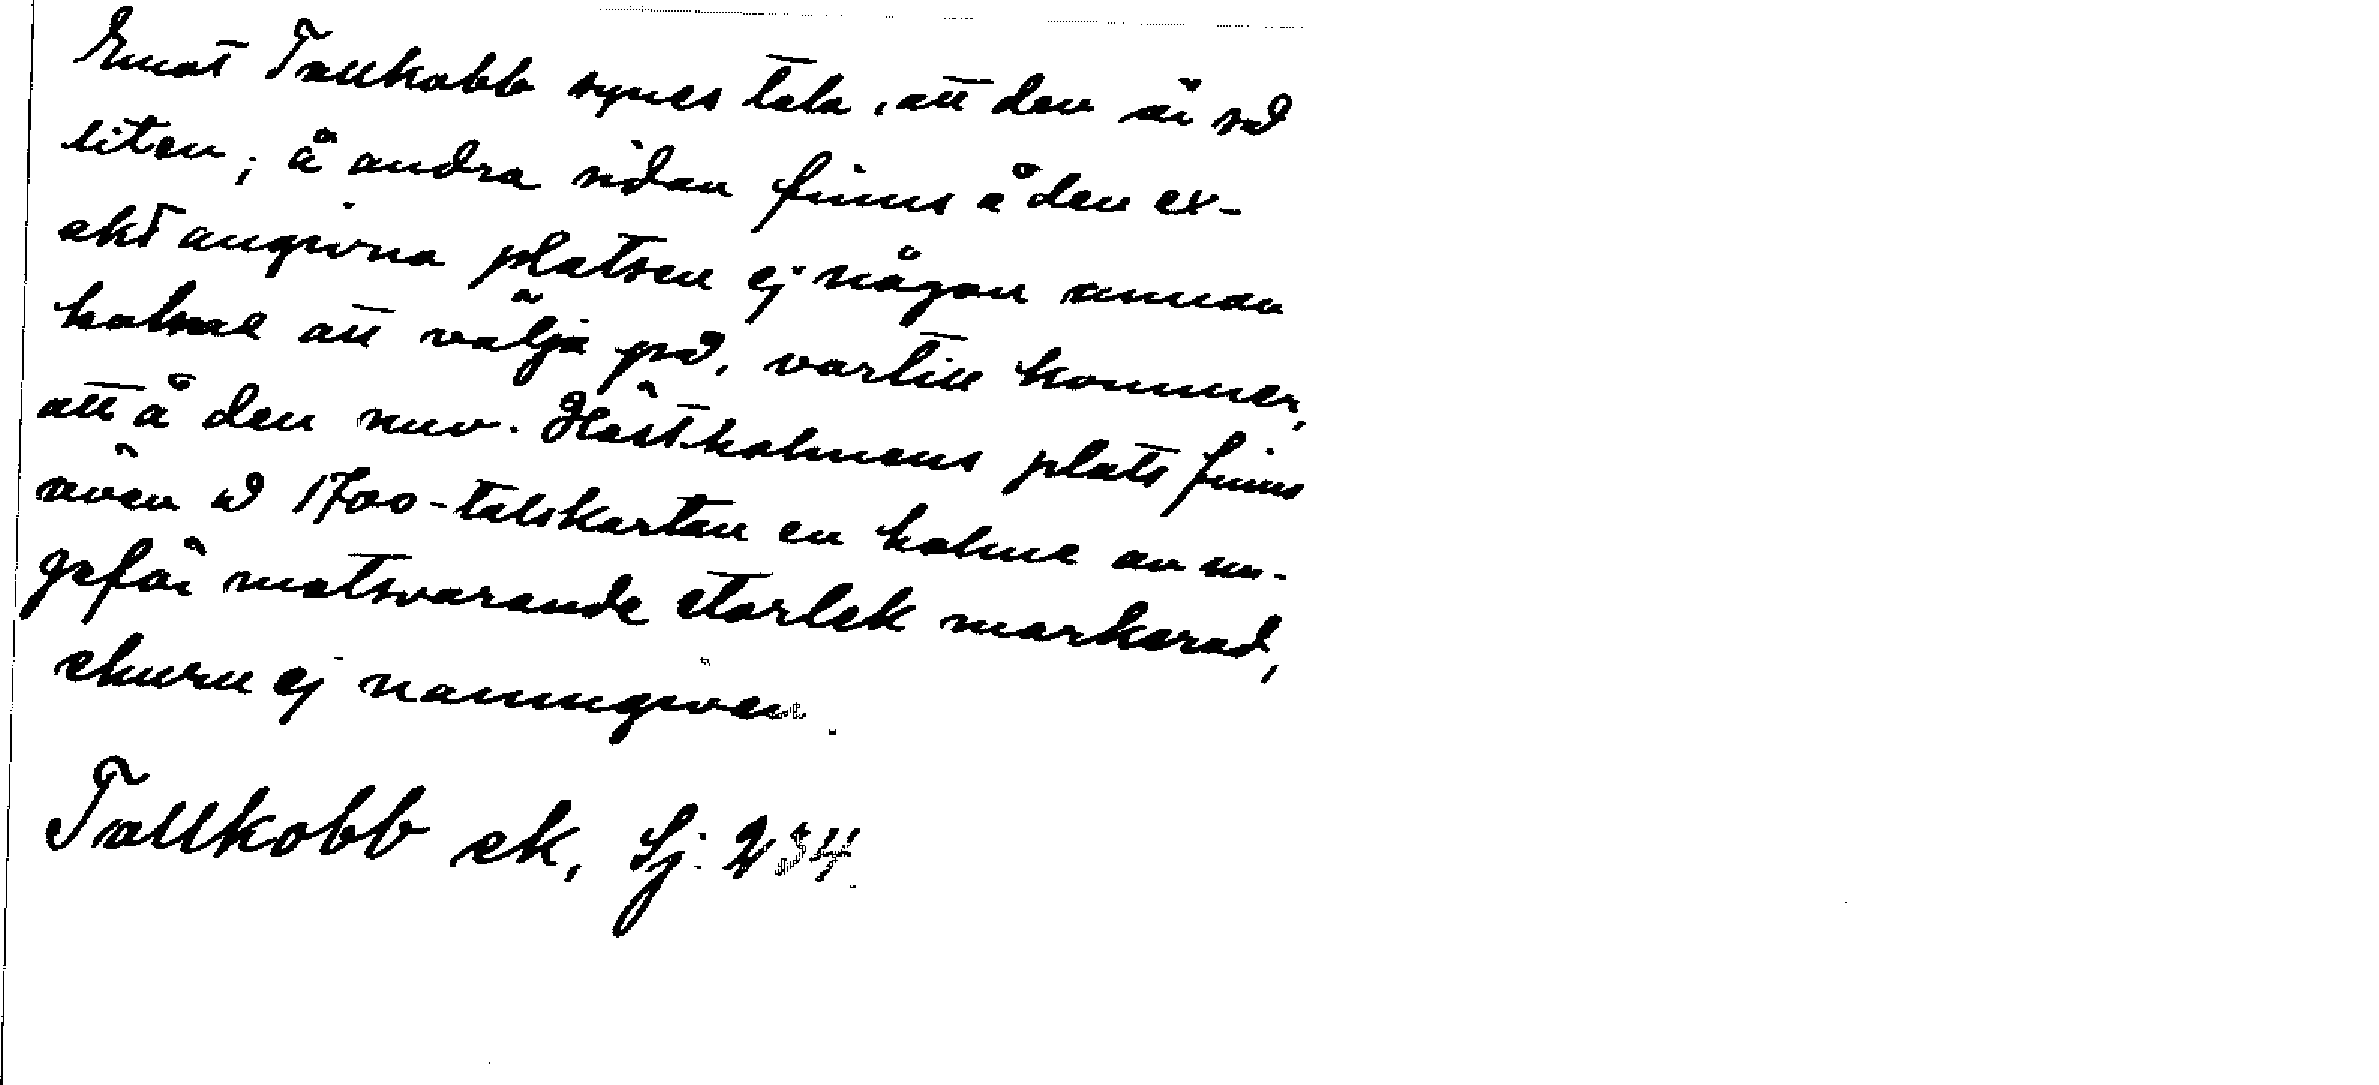 Emot Tallkobb synes tala, att den är så
liten; å andra sidan finns å den ex-
akt angivna platsen ej någon annan
holme att välja på, vartill kommer,
att å den nuv. Hästholmens plats finns
även å 1700-talskartan en holme av un-
gefär motsvarande storlek markerad,
ehuru ej namngiven.
Tallkobb ek, Sj. 234.